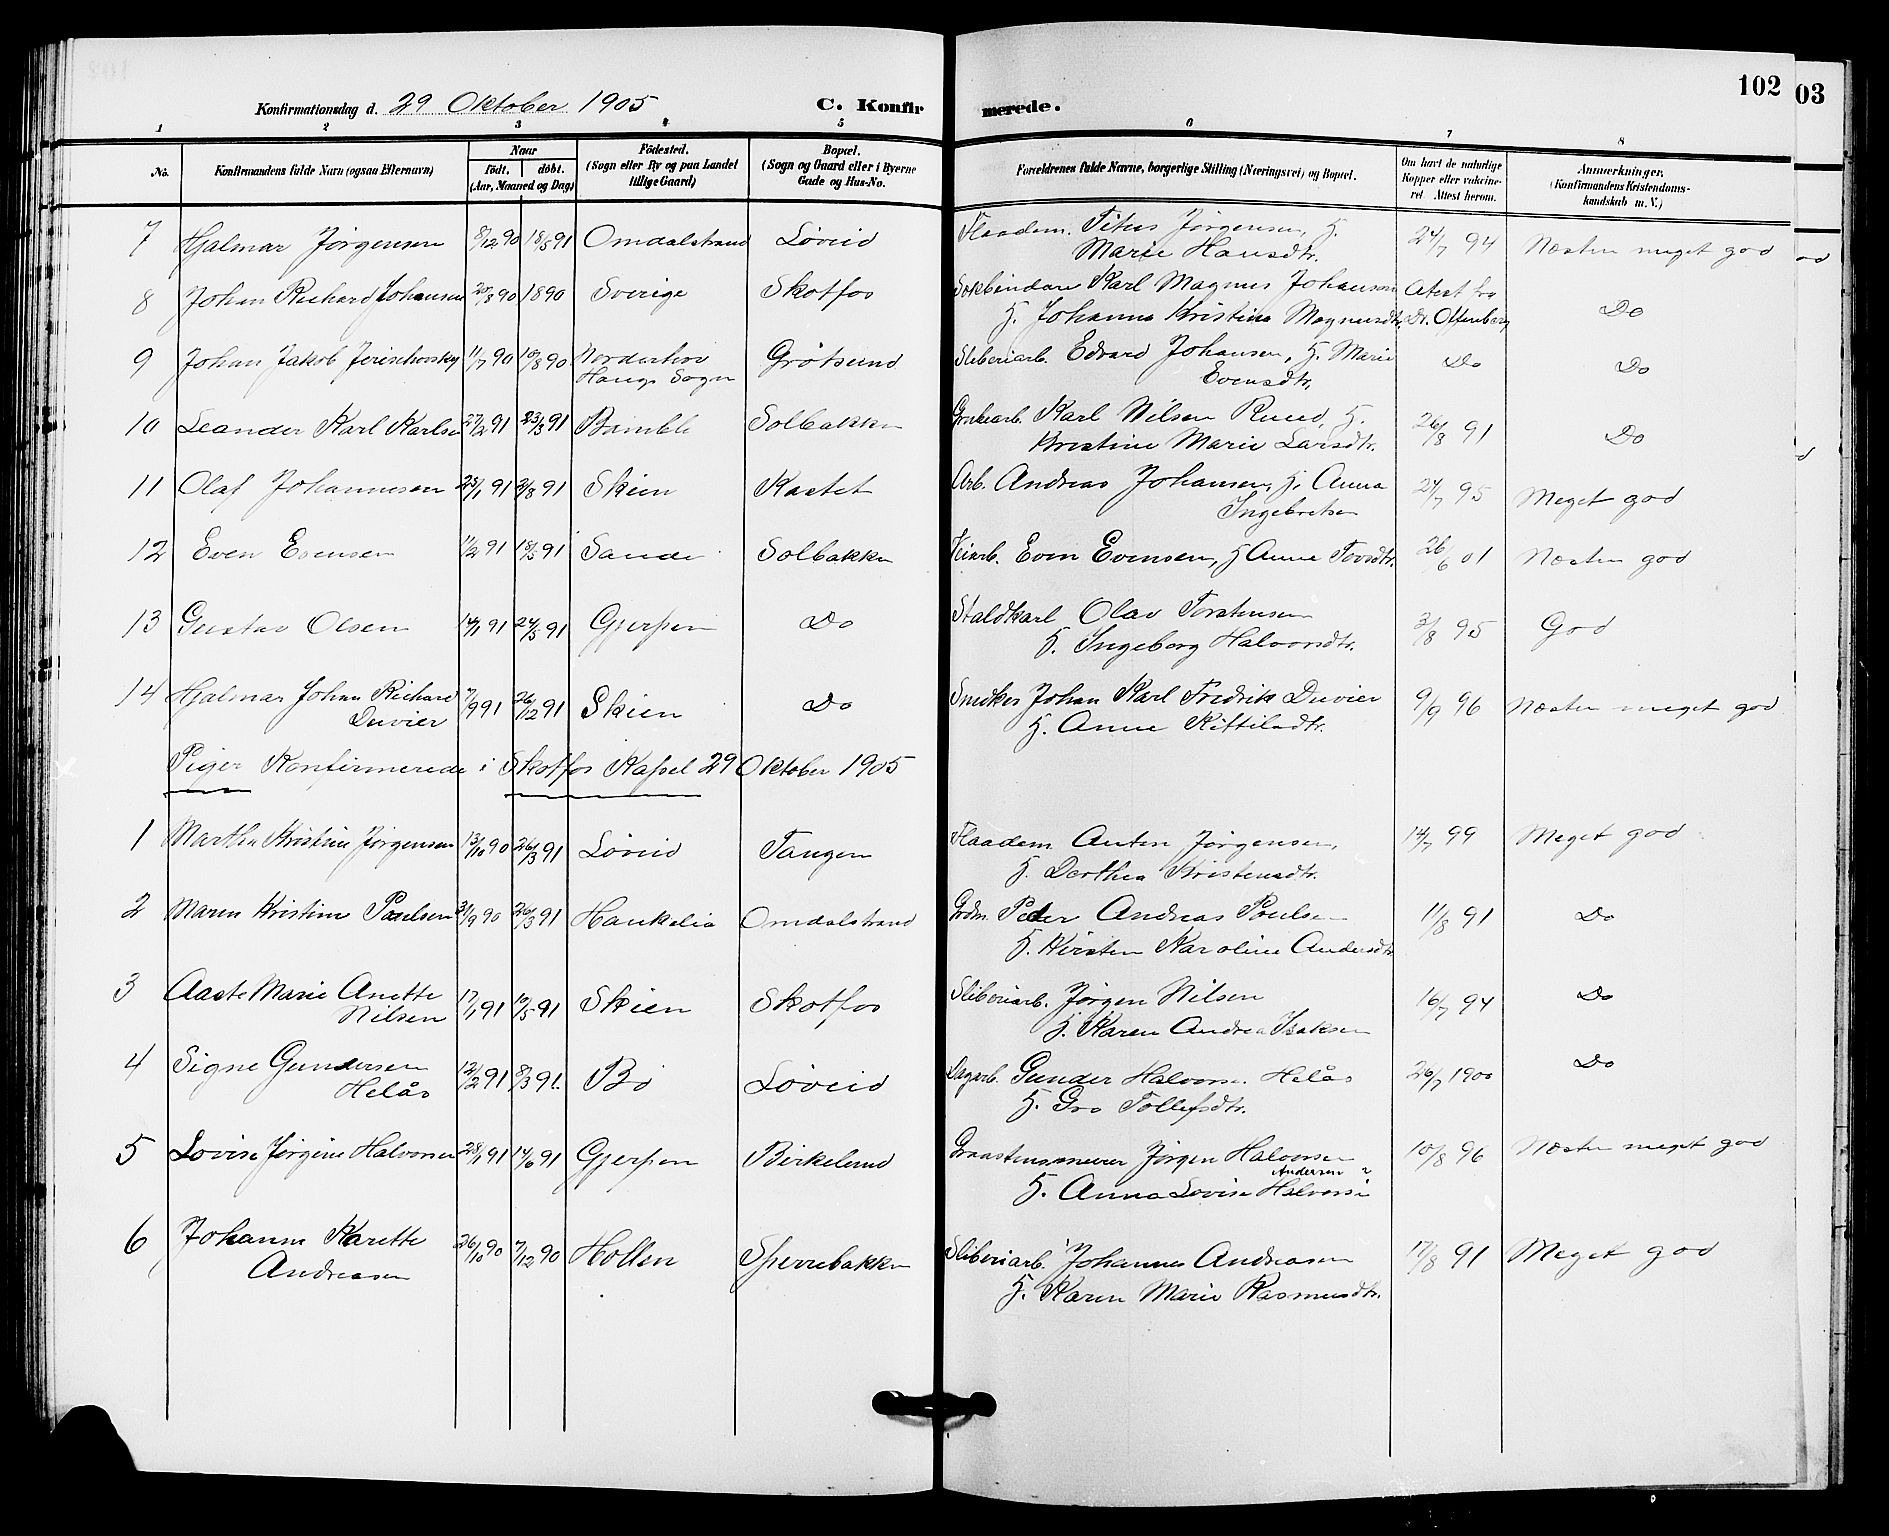 102
03
Konfirmationsdag d. 29 Oktober 1905
C. Konfirmerede.
1 2 3 4 5 6 7 8
No. | Konfirmandens fulde Navn (ogsaa Efternavn) | Naar født, døbt. (Aar, Maaned og Dag) | Fødested. (Sogn eller By og paa Landet tillige Gaard) | Bopæl. (Sogn og Gaard eller i Byerne Gade og Hus-No. | Forældrenes fulde Navne, borgerlige Stilling (Næringsvei) og Bopæl. | Om havt de naturlige Kopper eller vakcineret. Attest herom. | Anmerkninger. (Konfirmandens Kristendomskundskab m. V.)
7 Hjalmar Jørgensen 8/12 90 18/5 91 Omdalstrand Løveid Flaadem. Titus Jørgensen, H. 24/7 94 Næsten meget god
Marie Hansdtr.
8 Johan Richard Johansen 20/8 90 1890 Sverige Skotfos Karl Magnus Johanson Atest fra Do
H. Johanna Kristina Magnusdtr. Dr.
9 Johan Jakob 11/7 90 10/8 90 Norderhov Grøtsund Sliberiarb. Edvard Johansen, H. Marie Do Do
Haugs Sogn Evensdtr.
10 Leander Karl Karlsen 27/2 91 23/3 91 Bamble Solbakken Grubearb. Karl Nilsen Ruud, H. 26/8 91 Do
Kristine Marie Larsdtr.
11 Olaf Johannesen 25/1 91 2/8 91 Skien Kastet Arb. Andreas Johansen, H. Anna 24/7 95 Meget god
Ingebretsen
12 Even Evensen 11/2 91 18/5 91 Sande Solbakken Veiarb. Even Evensen, H Anne Tovsdtr. 26/6 01 Næsten god
13 Gustav Olsen 14/1 91 24/5 91 Gjerpen Do Staldkarl Olav Torstensen 3/8 95 God
H. Ingeborg Halvorsdtr.
14 Hjalmar Johan Richard 7/9 91 26/12 91 Skien Do Johan Karl Fredrik Duvier 9/9 96 Næsten meget god
Duvier H. Anne Kittilsdtr.
Piger Konfirmerede i Skotfos Kapel 29 Oktober 1905
1 Martha Kristine Jørgensen 13/10 90 26/3 91 Løveid Tangen Flaadem Anton Jørgensen, 14/7 99 Meget god
H. Dorthea Kristensdtr.
2 Maren Kristine Poulsen 30/9 90 26/3 91 Haukelia Omdalstrand Grdm. Peder Andreas Poulsen 11/8 91 Do
H. Kirsten Karoline Andersdtr
3 Aaste Marie Anette 17/1 91 10/5 91 Skien Skotfos Sliberiarb. Jørgen Nilsen 16/7 94 Do
Nilsen H. Karen Andrea Isaksen
4 Signe Gundersen 12/2 91 8/3 91. Bø Løveid Dagarb. Gunder Halvorsen Helås 26/7 1900 Do
Helås H. Gro Tollefsdtr.
5 Lovise Jørgine Halvorsen 28/1 91 14/6 91 Gjerpen Birkelund Jørgen Halvorsen 10/8 96 Næsten meget god
Andersen
H. Anna Lovise Halvorsen
6 Johanne Karette 26/10 90 7/12 90 Hollen Sperrebakken Sliberiarb. Johannes Andreasen 17/8 91 Meget god
Andreasen H. Karen Marie Rasmusdtr.